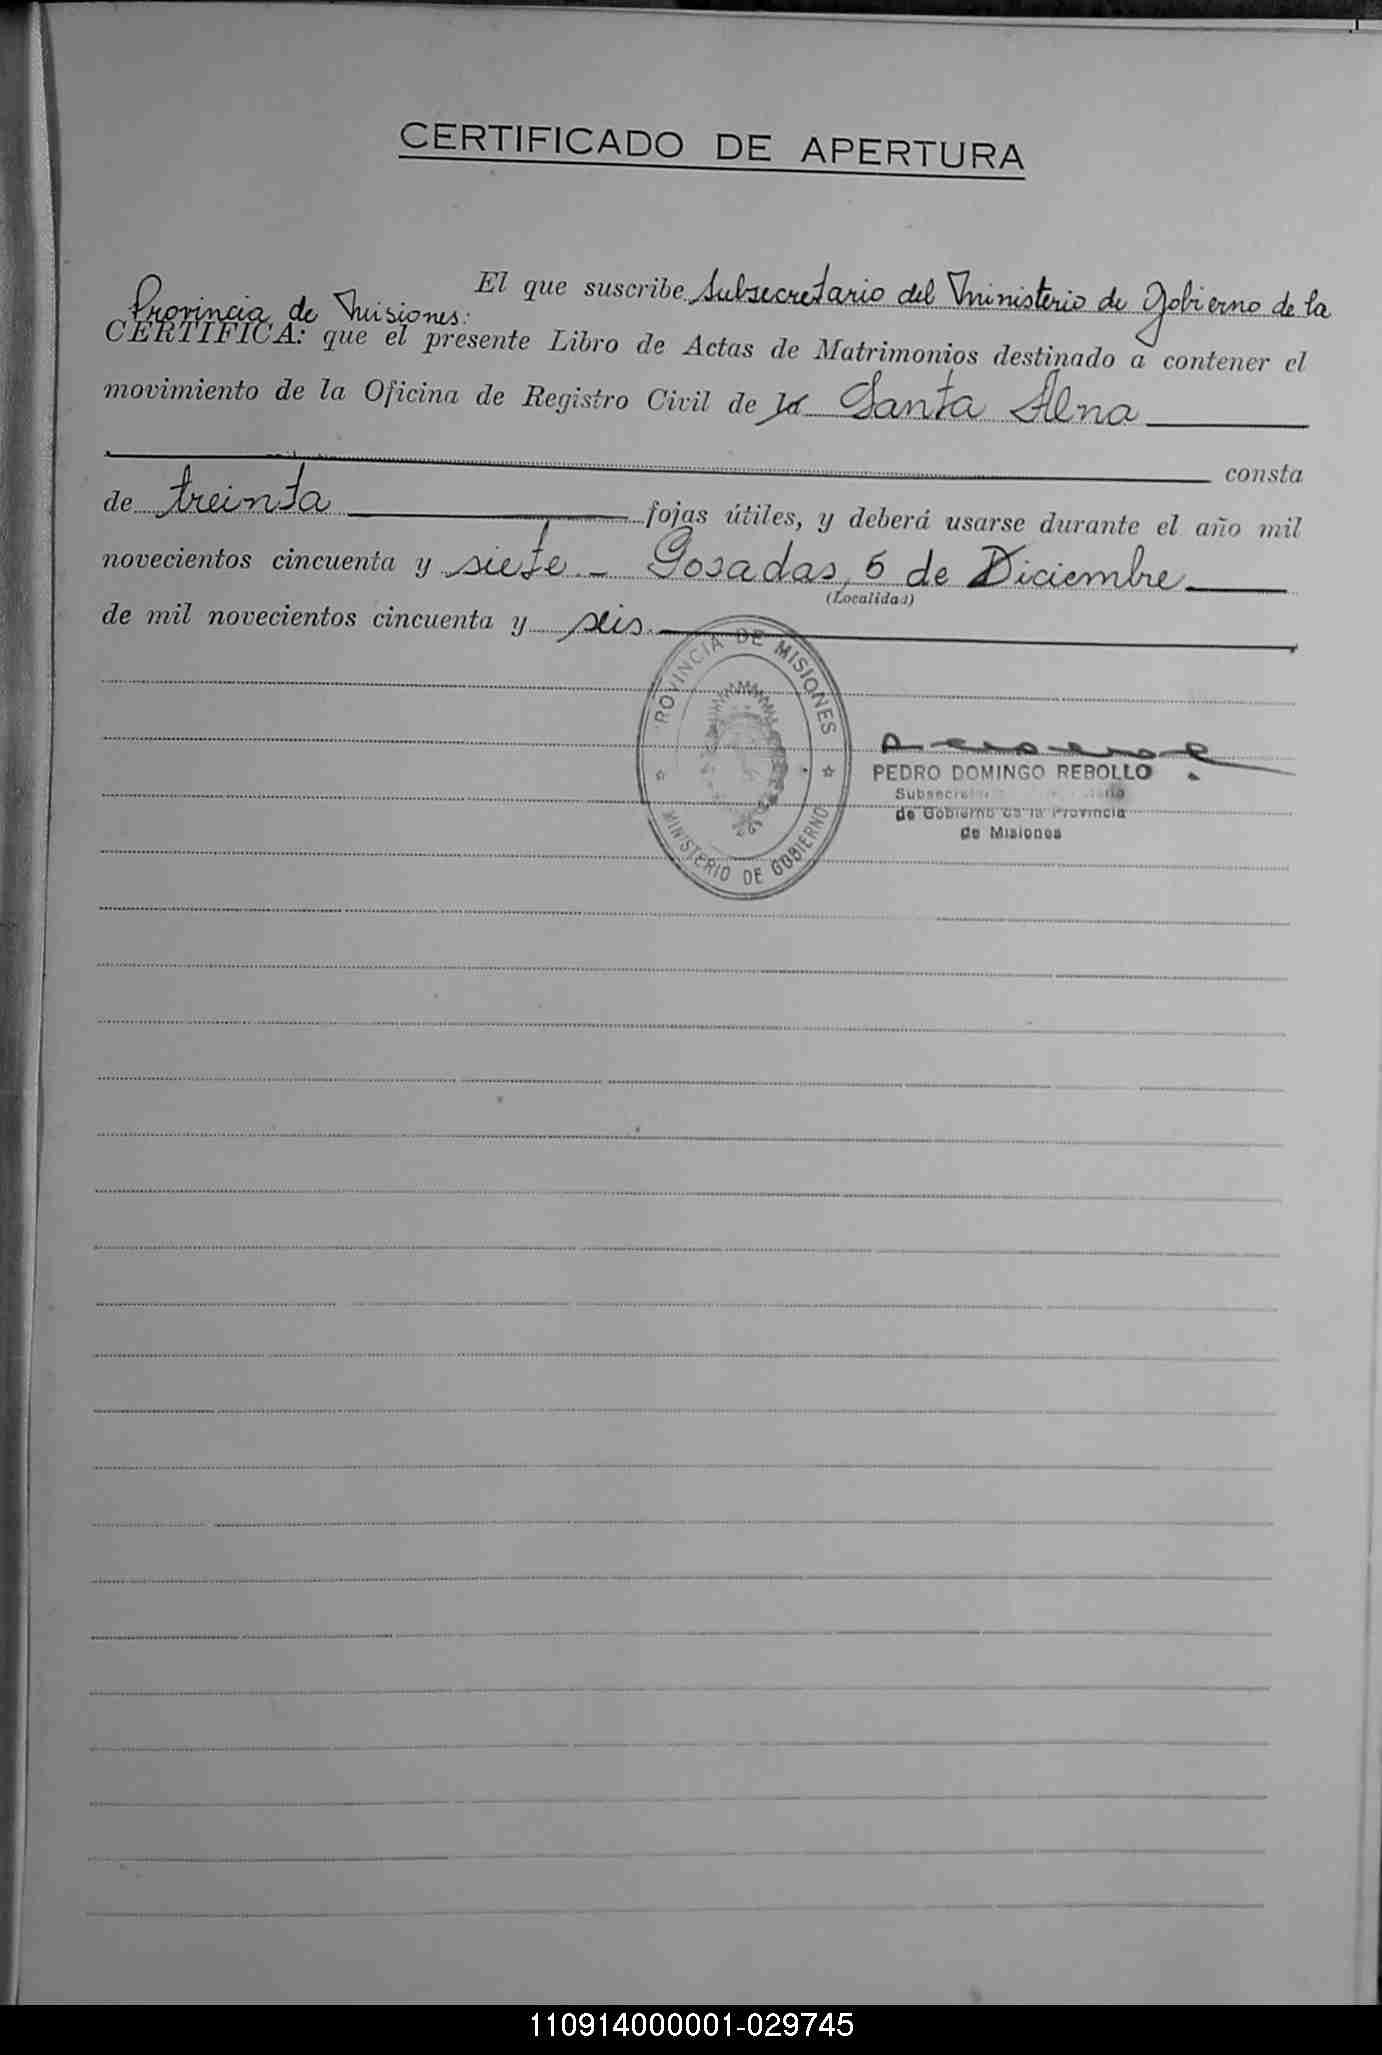 CERTIFICADO DE APERTURA
El que suscribe Subsecretario del Ministerio de Gobierno de la
Provincia de Misiones:
CERTIFICA: que el presente Libro de Actas de Matrimonios destinado a contener el
movimiento de la Oficina de Registro Civil de la Santa Ana
consta
de treinta fojas útiles, y deberá usarse durante el año mil
novecientos cincuenta y siete.- Posadas, 5 de Diciembre
(Localidad)
de mil novecientos cincuenta y seis.
PROVINCIA DE MISIONES
MINISTERIO DE GOBIERNO
PEDRO DOMINGO REBOLLO
de Gobierno de la Provincia
de Misiones
110914000001-029745